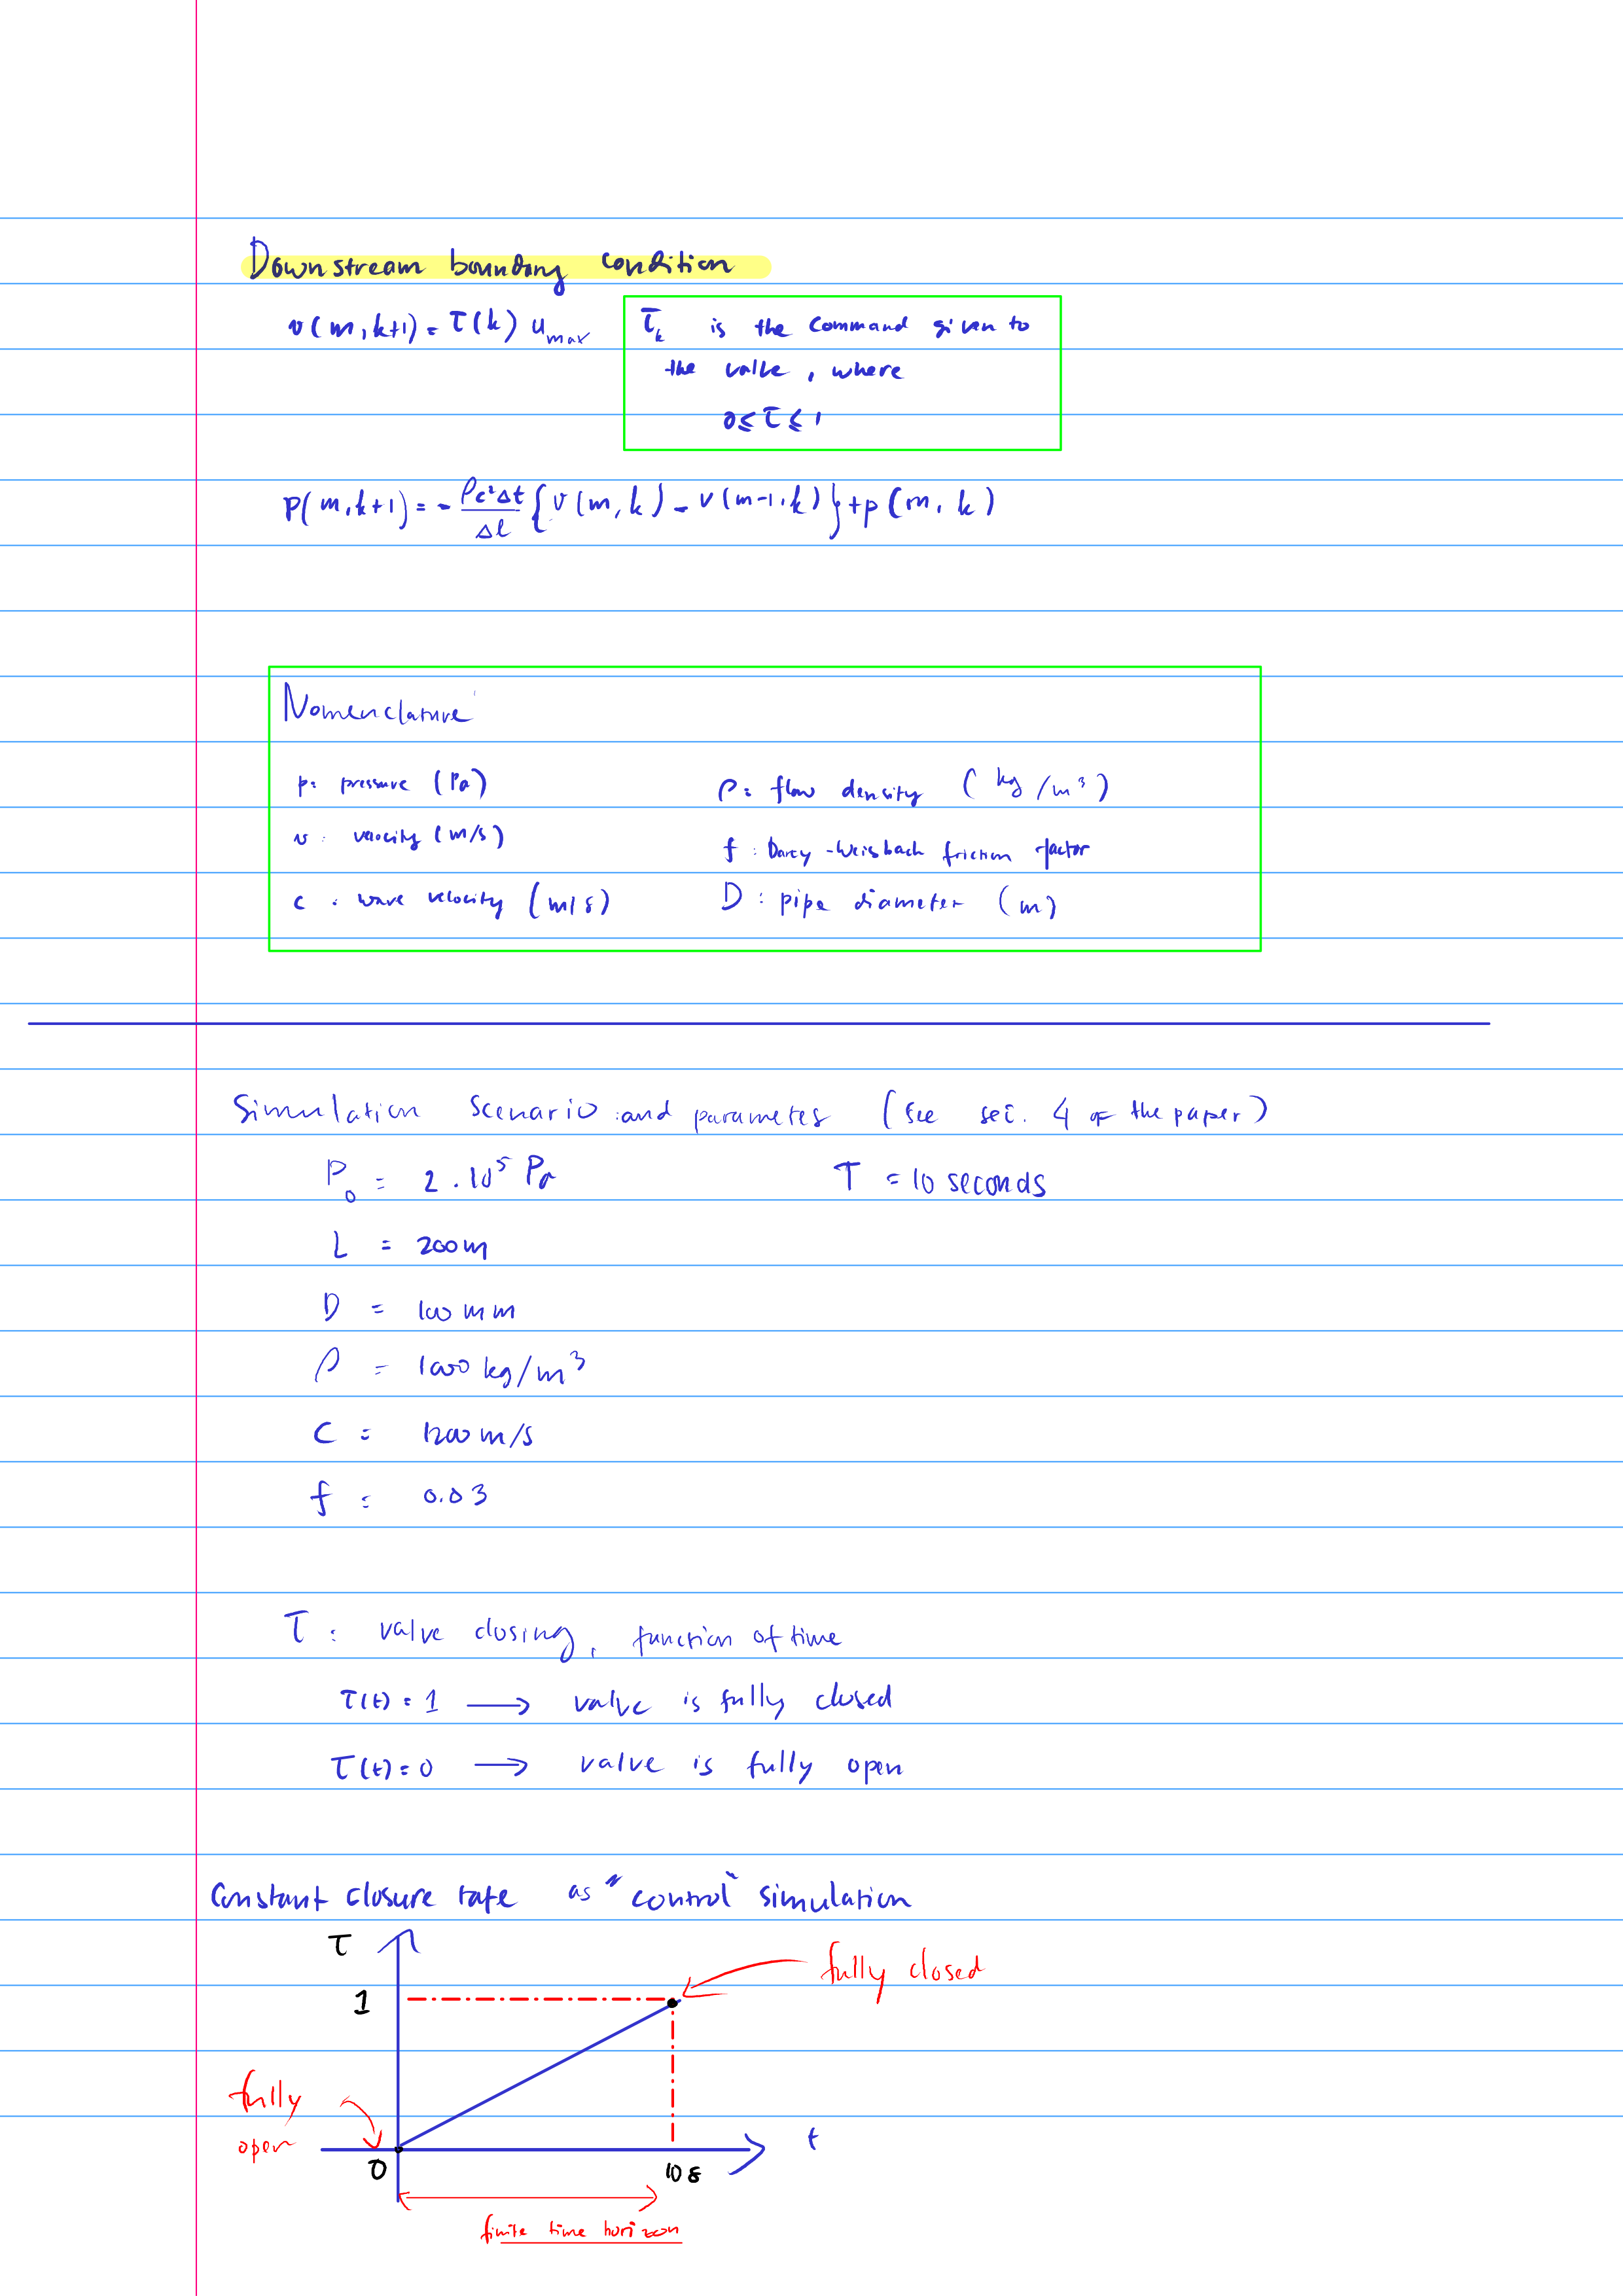 Downstream boundary condition
v(m,k+1) = τ(k) u_max
τ_k is the command given to
the valve, where
0 ≤ τ ≤ 1
p(m,k+1) = - ρc²Δt/Δl {v(m,k) - v(m-1,k)} + p(m,k)
Nomenclature
p: pressure (Pa)
ρ: flow density (kg/m³)
v: velocity (m/s)
f: Darcy-Weisbach friction factor
c: wave velocity (m/s)
D: pipe diameter (m)
Simulation scenario and parametes (see sec. 4 of the paper)
P₀ = 2.10⁵ Pa
T = 10 seconds
L = 200m
D = 100mm
ρ = 1000 kg/m³
C = 1200 m/s
f = 0.03
τ: valve closing, function of time
τ(t) = 1 → valve is fully closed
τ(t) = 0 → valve is fully open
Constant closure rate as "control" simulation
τ
fully closed
1
fully
open
t
0
10s
finite time horizon